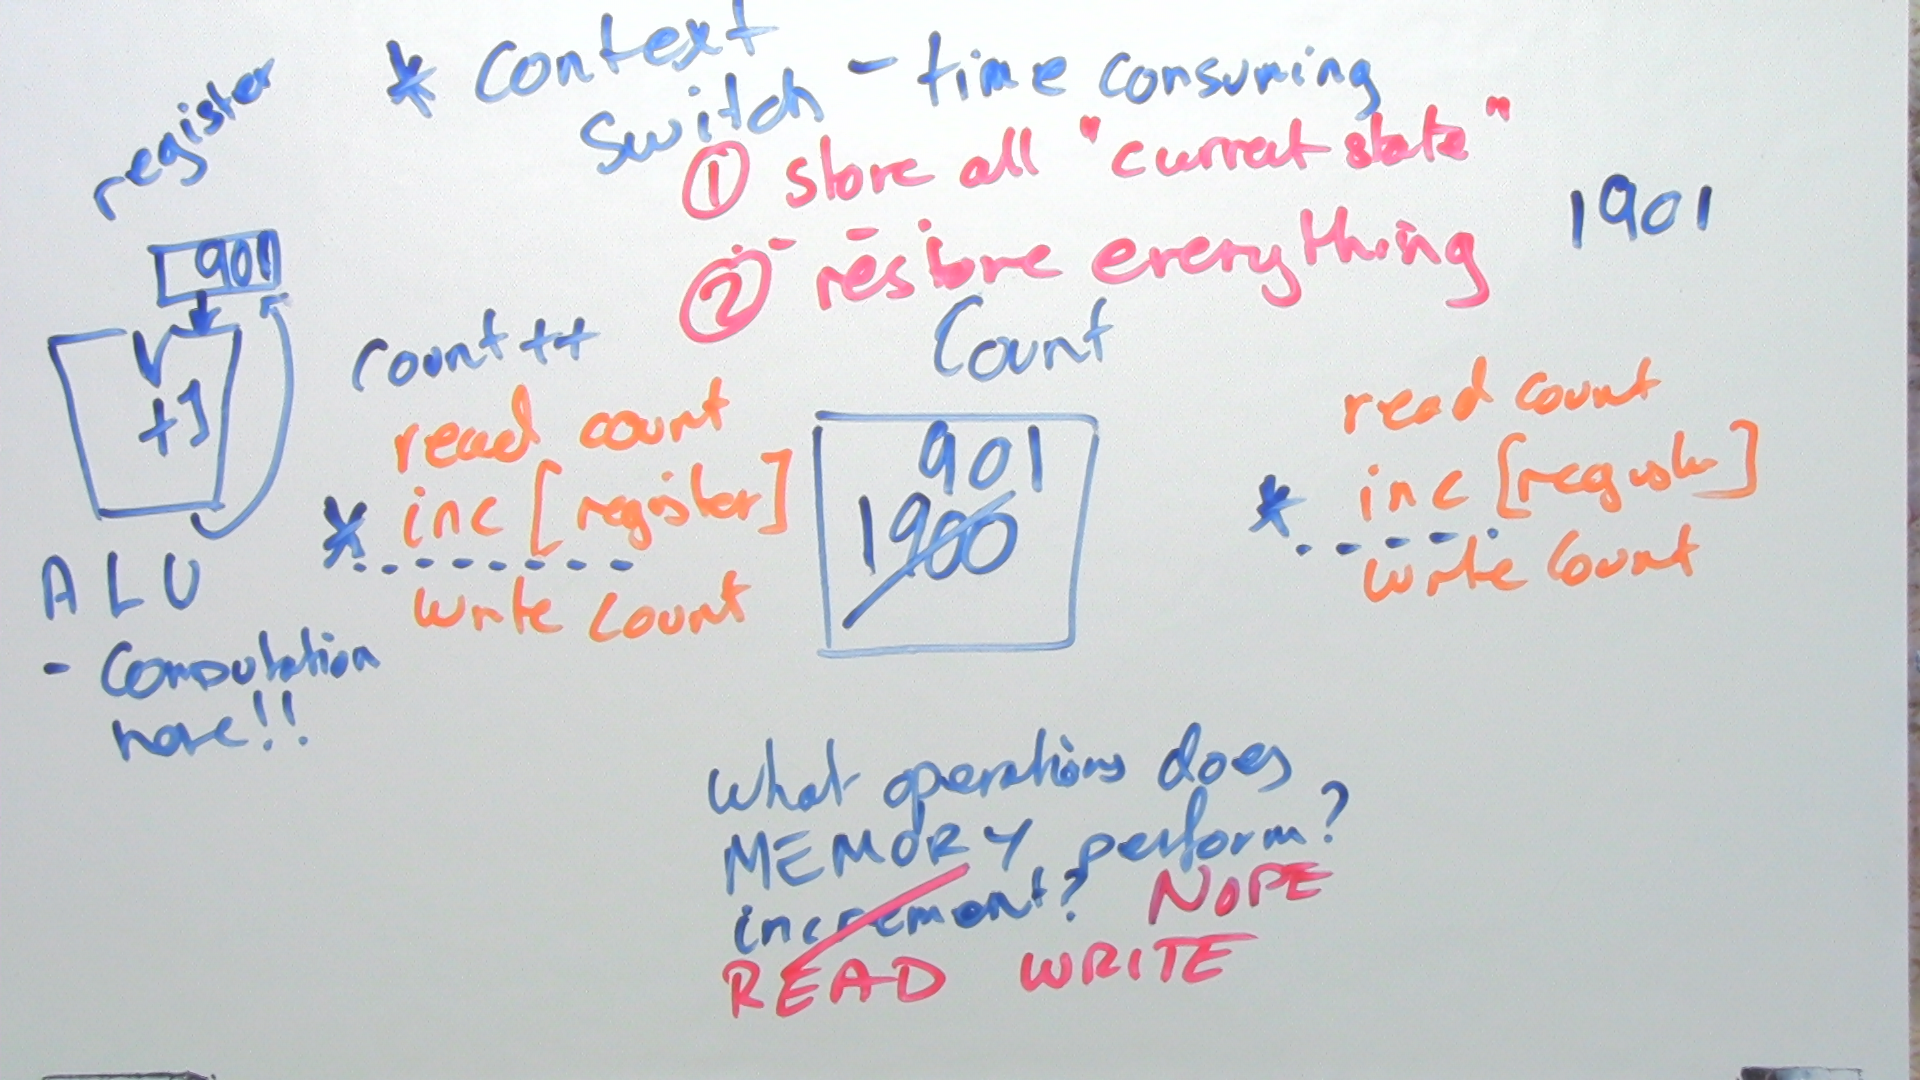 * Context
Switch - time consuming
① store all "current state"
② restore everything
register
901
+1
ALU
- Computation
here!!
count++
read count
* inc [register]
write count
Count
901
1900
1901
read count
* inc [register]
write count
What operations does
MEMORY perform?
increment? NOPE
READ WRITE